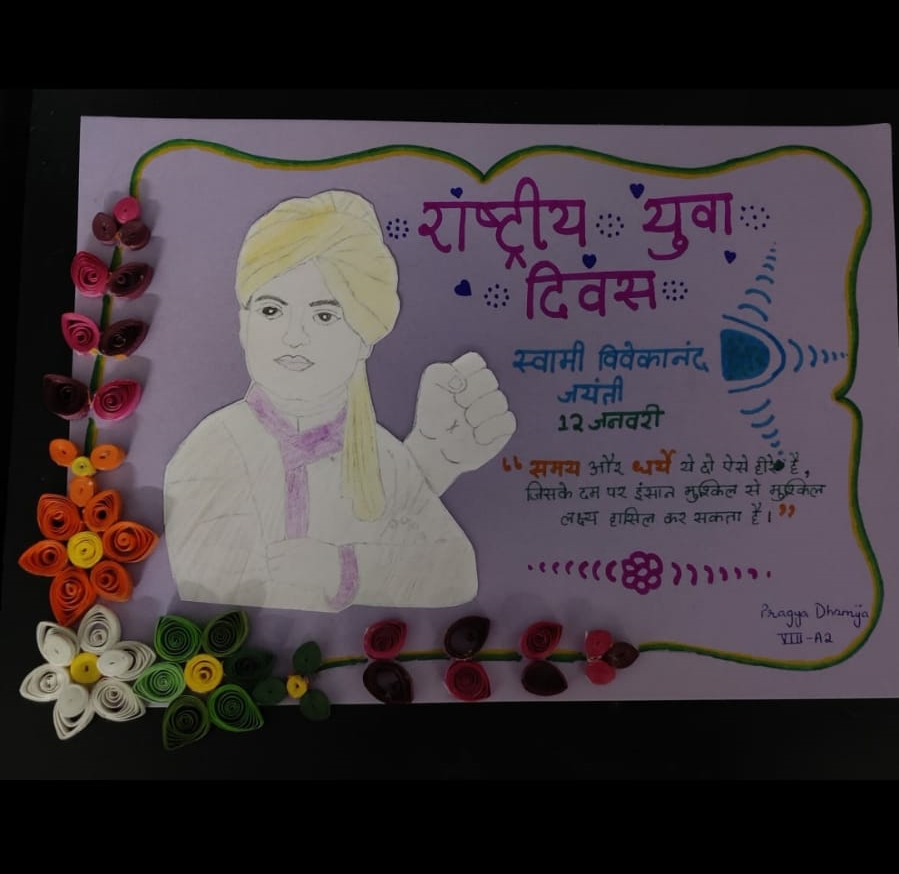 राष्ट्रीय युवा
दिवस
स्वामी विवेकानंद
जयंती
12 जनवरी
“समय और धर्य ये दो ऐसे हीरे है,
जिसके दम पर इंसान मुश्किल से मुश्किल
लक्ष्य हासिल कर सकता है।”
Pragya Dhamija
VIII-A2